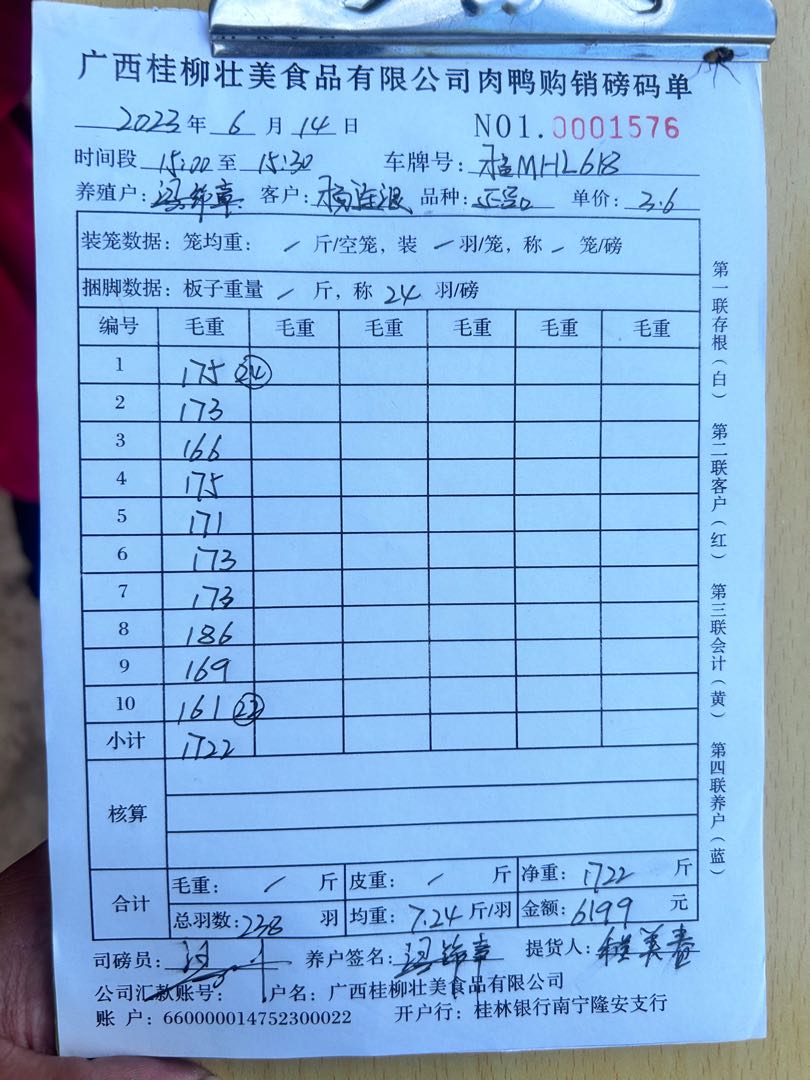 广西桂柳壮美食品有限公司肉鸭购销磅码单
2023年 6 月 14 日 NO1.0001576
时间段 15:00 至 15:30 车牌号: 桂MHL618
养殖户: 冯锦章 客户: 品种: 单价: 3.6
装笼数据: 笼均重: / 斤/空笼, 装 / 羽/笼, 称 / 笼/磅
捆脚数据: 板子重量 / 斤, 称 24 羽/磅
编号 毛重 毛重 毛重 毛重 毛重 毛重
1 175 24
2 173
3 166
4 175
5 171
6 173
7 173
8 186
9 169
10 161 22
小计 1722
核算
合计 毛重: / 斤 皮重: / 斤 净重: 1722 斤
总羽数: 238 羽 均重: 7.24 斤/羽 金额: 6199 元
司磅员: 养户签名: 冯锦章 提货人:
公司汇款账号: 户名: 广西桂柳壮美食品有限公司
账 户: 660000014752300022 开户行: 桂林银行南宁隆安支行
第一联存根(白) 第二联客户(红) 第三联会计(黄) 第四联养户(蓝)